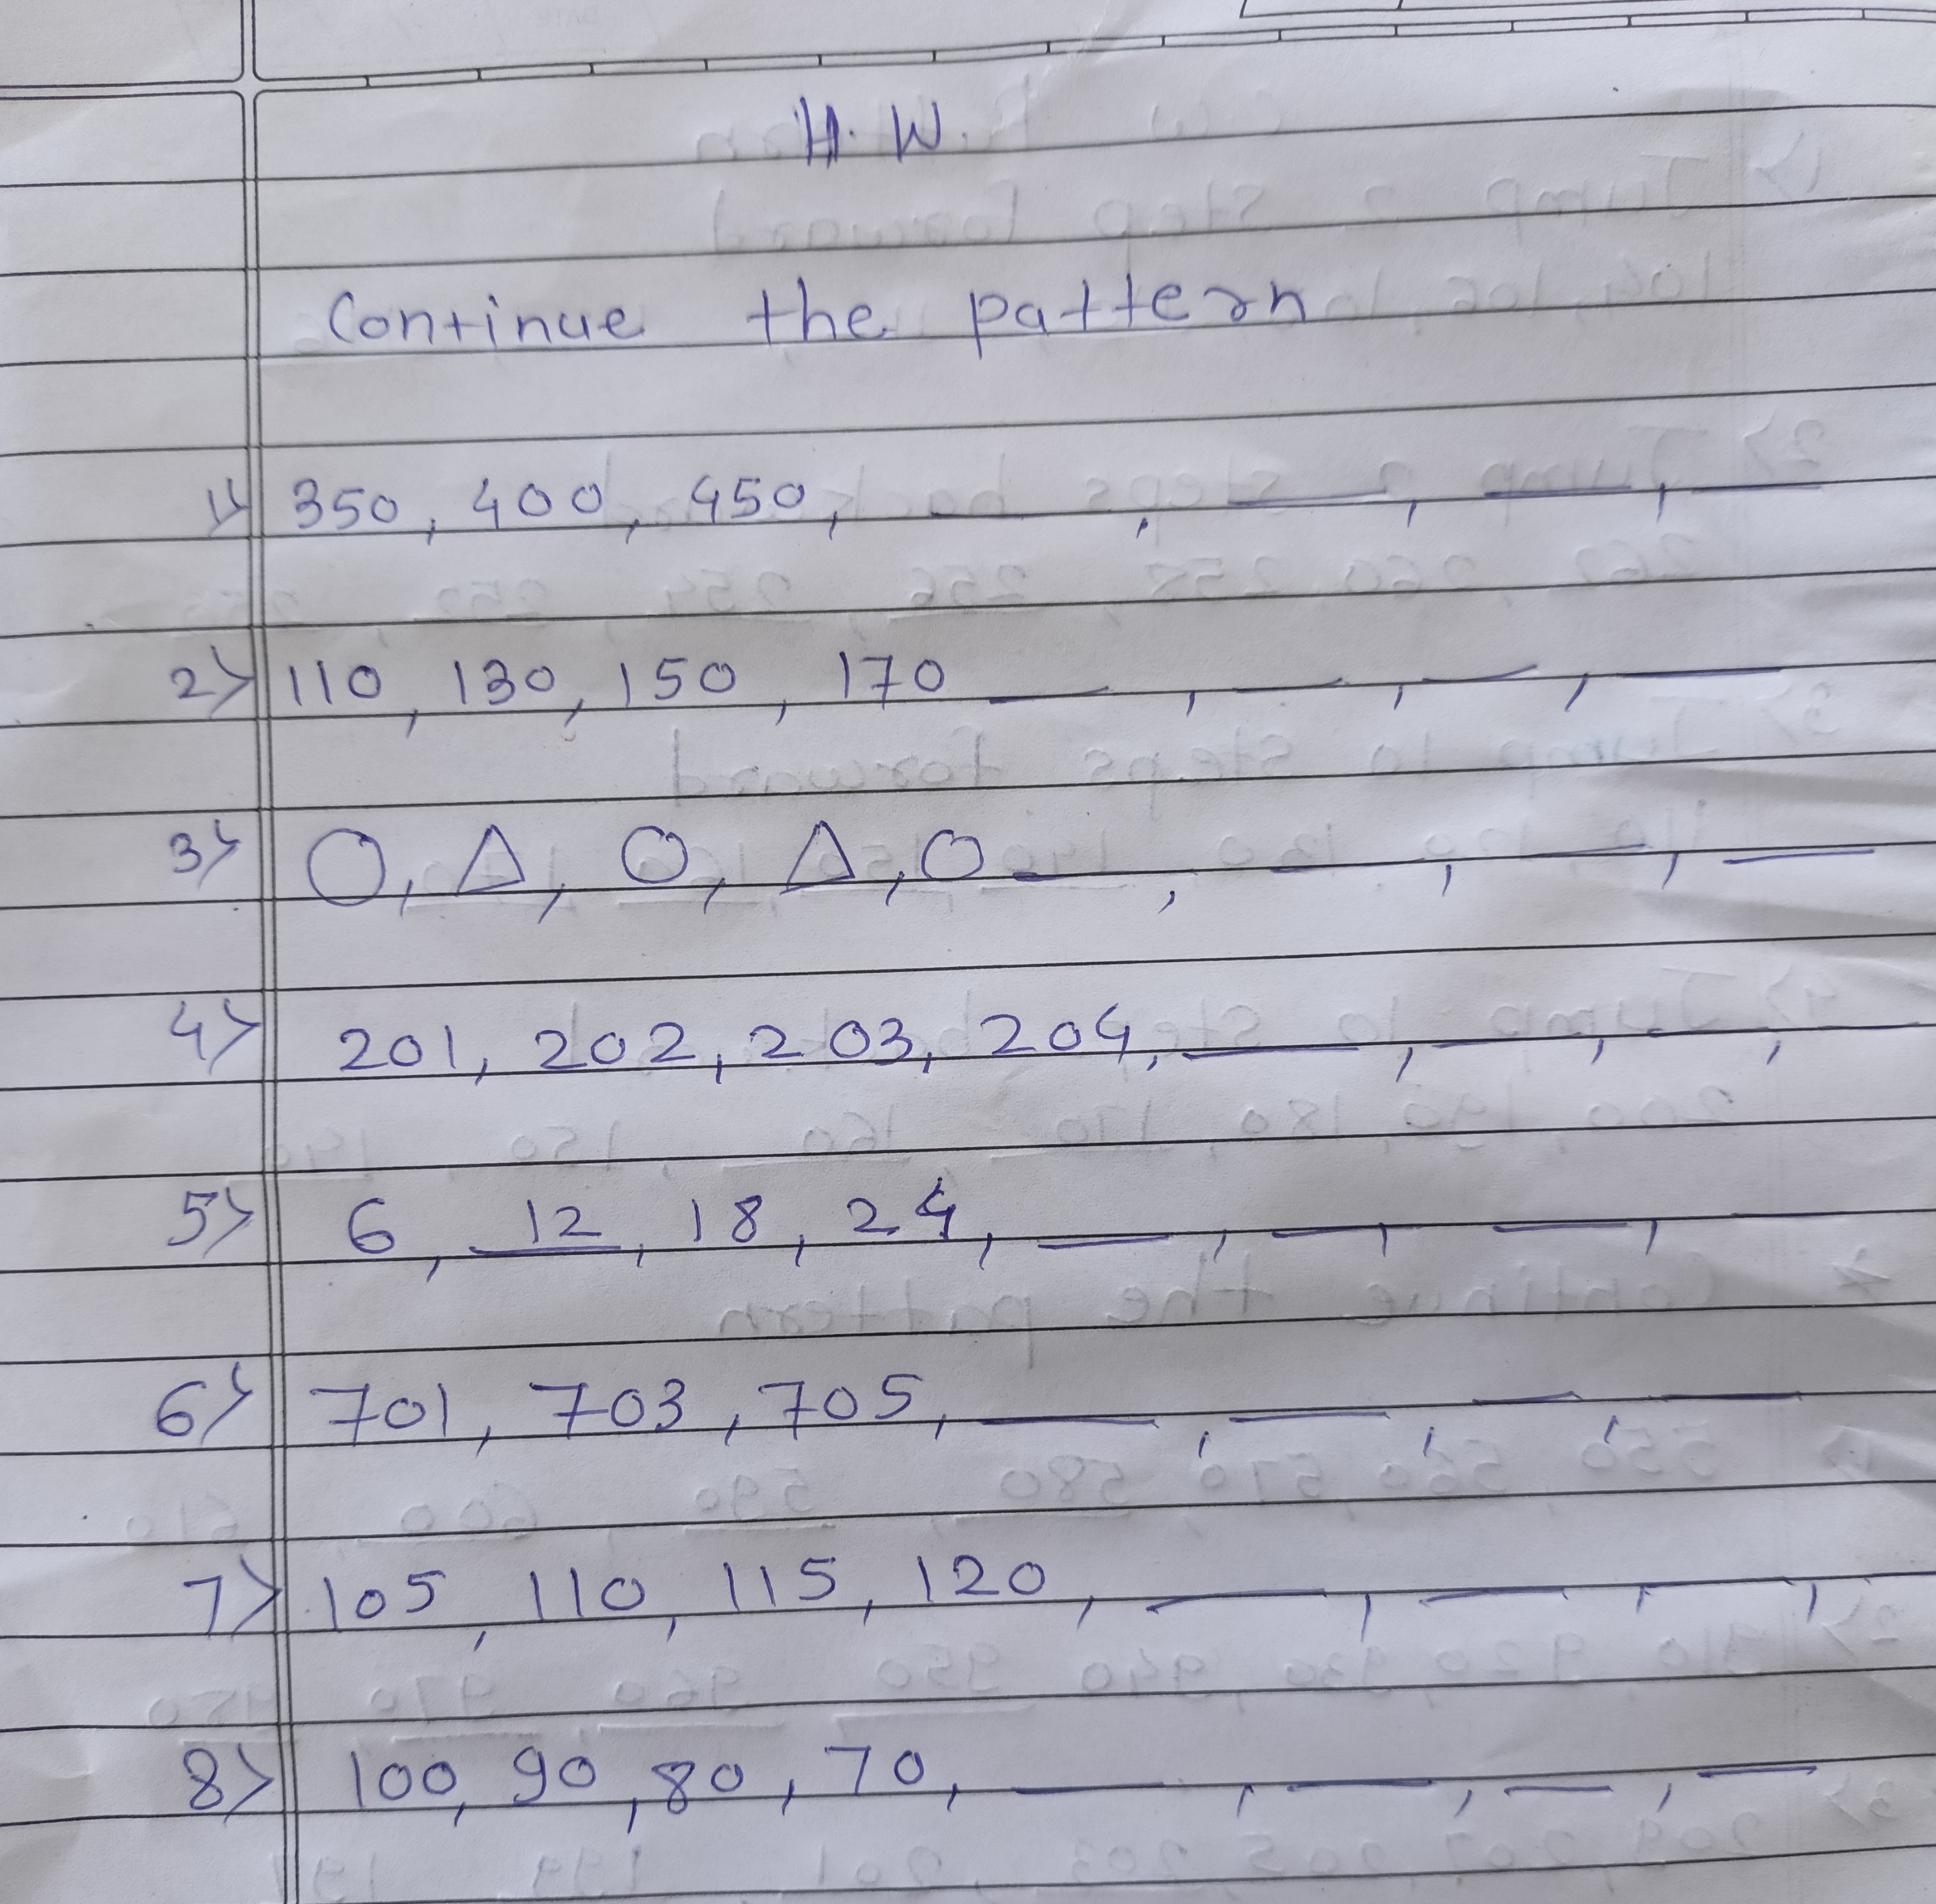 H.W.
Continue the pattern
1> 350, 400, 450, ___, ___, ___, ___
2> 110, 130, 150, 170 ___, ___, ___, ___
3> ○, △, ○, △, ○ ___, ___, ___, ___
4> 201, 202, 203, 204, ___, ___, ___,
5> 6, 12, 18, 24, ___, ___, ___, ___
6> 701, 703, 705, ___, ___, ___, ___
7> 105, 110, 115, 120, ___, ___, ___,
8> 100, 90, 80, 70, ___, ___, ___, ___